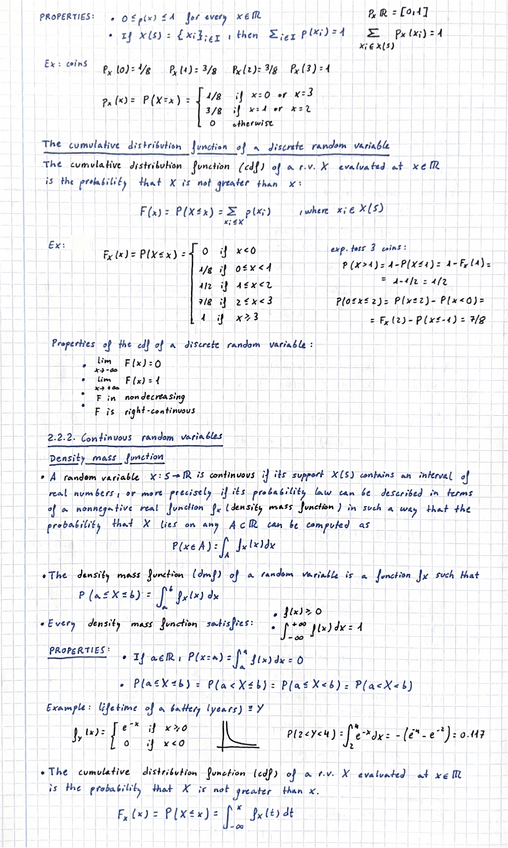 PROPERTIES: • 0 ≤ p(x) ≤ 1 for every x ∈ ℝ Pₓ ℝ = [0,1]
• If X(S) = {xi}i∈I , then Σi∈I p(xi) = 1 Σxi∈X(S) Pₓ(xi) = 1
Ex: coins Pₓ(0) = 1/8 Pₓ(1) = 3/8 Pₓ(2) = 3/8 Pₓ(3) = 1
Pₓ(x) = P(X=x) = { 1/8 if x=0 or x=3
3/8 if x=1 or x=2
0 otherwise
The cumulative distribution function of a discrete random variable
The cumulative distribution function (cdf) of a r.v. X evaluated at x ∈ ℝ
is the probability that X is not greater than x:
F(x) = P(X≤x) = Σxi≤x p(xi) , where xi ∈ X(S)
Ex: Fₓ(x) = P(X≤x) = { 0 if x<0
1/8 if 0≤x<1
1/2 if 1≤x<2
7/8 if 2≤x<3
1 if x≥3
exp. toss 3 coins:
P(X>1) = 1-P(X≤1) = 1-Fₓ(1) =
= 1-1/2 = 1/2
P(0≤x≤2) = P(x≤2) - P(x<0) =
= Fₓ(2) - P(x≤-1) = 7/8
Properties of the cdf of a discrete random variable:
• lim x→-∞ F(x) = 0
• lim x→+∞ F(x) = 1
• F in nondecreasing
• F is right-continuous
2.2.2. Continuous random variables
Density mass function
• A random variable X: S→ℝ is continuous if its support X(S) contains an interval of
real numbers, or more precisely if its probability law can be described in terms
of a nonnegative real function fₓ (density mass function) in such a way that the
probability that X lies on any A⊂ℝ can be computed as
P(x∈A) = ∫A fₓ(x)dx
• The density mass function (dmf) of a random variable is a function fₓ such that
P(a≤X≤b) = ∫ₐᵇ fₓ(x) dx
• Every density mass function satisfies: • f(x) ≥ 0
• ∫-∞+∞ f(x) dx = 1
PROPERTIES: • If a∈ℝ, P(X=a) = ∫ₐᵃ f(x) dx = 0
• P(a≤X≤b) = P(a<X≤b) = P(a≤X<b) = P(a<X<b)
Example: lifetime of a battery (years) ≡ Y
fY(x) = { e^-x if x≥0
0 if x<0
P(2<Y<4) = ∫₂⁴ e^-x dx = -(e^-4 - e^-2) = 0.117
• The cumulative distribution function (cdf) of a r.v. X evaluated at x ∈ ℝ
is the probability that X is not greater than x.
Fₓ(x) = P(X≤x) = ∫-∞x fₓ(t) dt